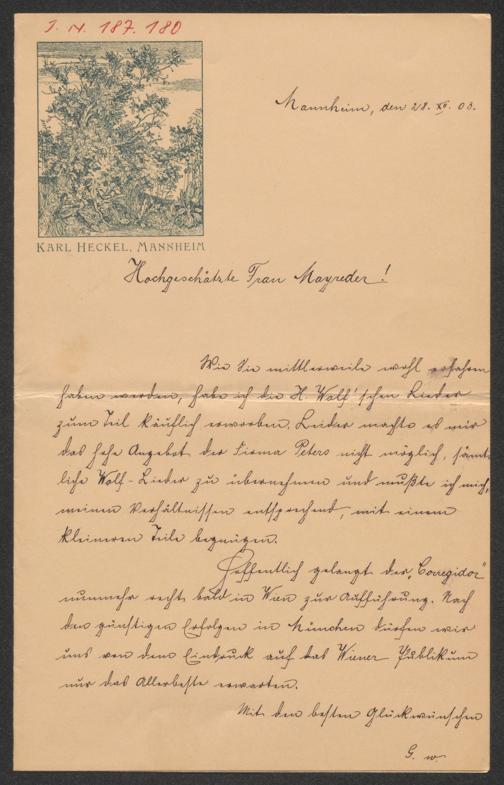 I. N. 187.180
Mannheim, den 28. XII. 03.
KARL HECKEL, MANNHEIM
Hochgeschätzte Frau Mayreder!
Wie Sie mittlerweile wohl erfahren
haben werden, habe ich die H Wolf'schen Lieder
zum Teil käuflich erworben. Leider machte es mir
das hohe Angebot der Firma Peters nicht möglich, sämt-
liche Wolf-Lieder zu übernehmen und mußte ich mich,
meinen Verhältnissen entsprechend, mit einem
kleineren Teile begnügen.
Hoffentlich gelangt der „Corregidor"
nunmehr recht bald in Wien zur Aufführung. Nach
den günstigen Erfolgen in München dürfen wir
uns von dem Eindruck auf das Wiener Publikum
nur das Allerbeste erwarten.
Mit den besten Glückwünschen
G. w.